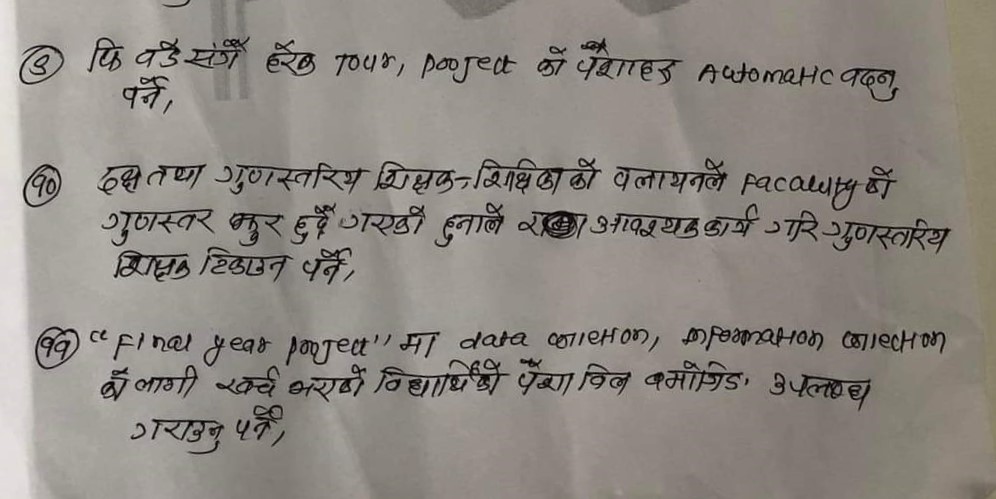 (९) फि वढै संगै हरेक Tour, project को पैशाहरु Automatic वढनु
पर्ने,
(१०) दक्ष तथा गुणस्तरिय शिक्षक-शिक्षिका को पलायनले Facaulty को
गुणस्तर कमजुर हुदै गएको हुनाले आवश्यक कार्य गरि गुणस्तरिय
शिक्षक टिकाउन पर्ने,
(११) "Final year project" मा data collection, Information collection
को लागी खर्च भएको विद्यार्थिको पैशा विल वमोजिम उपलब्ध
गराउनु पर्ने,